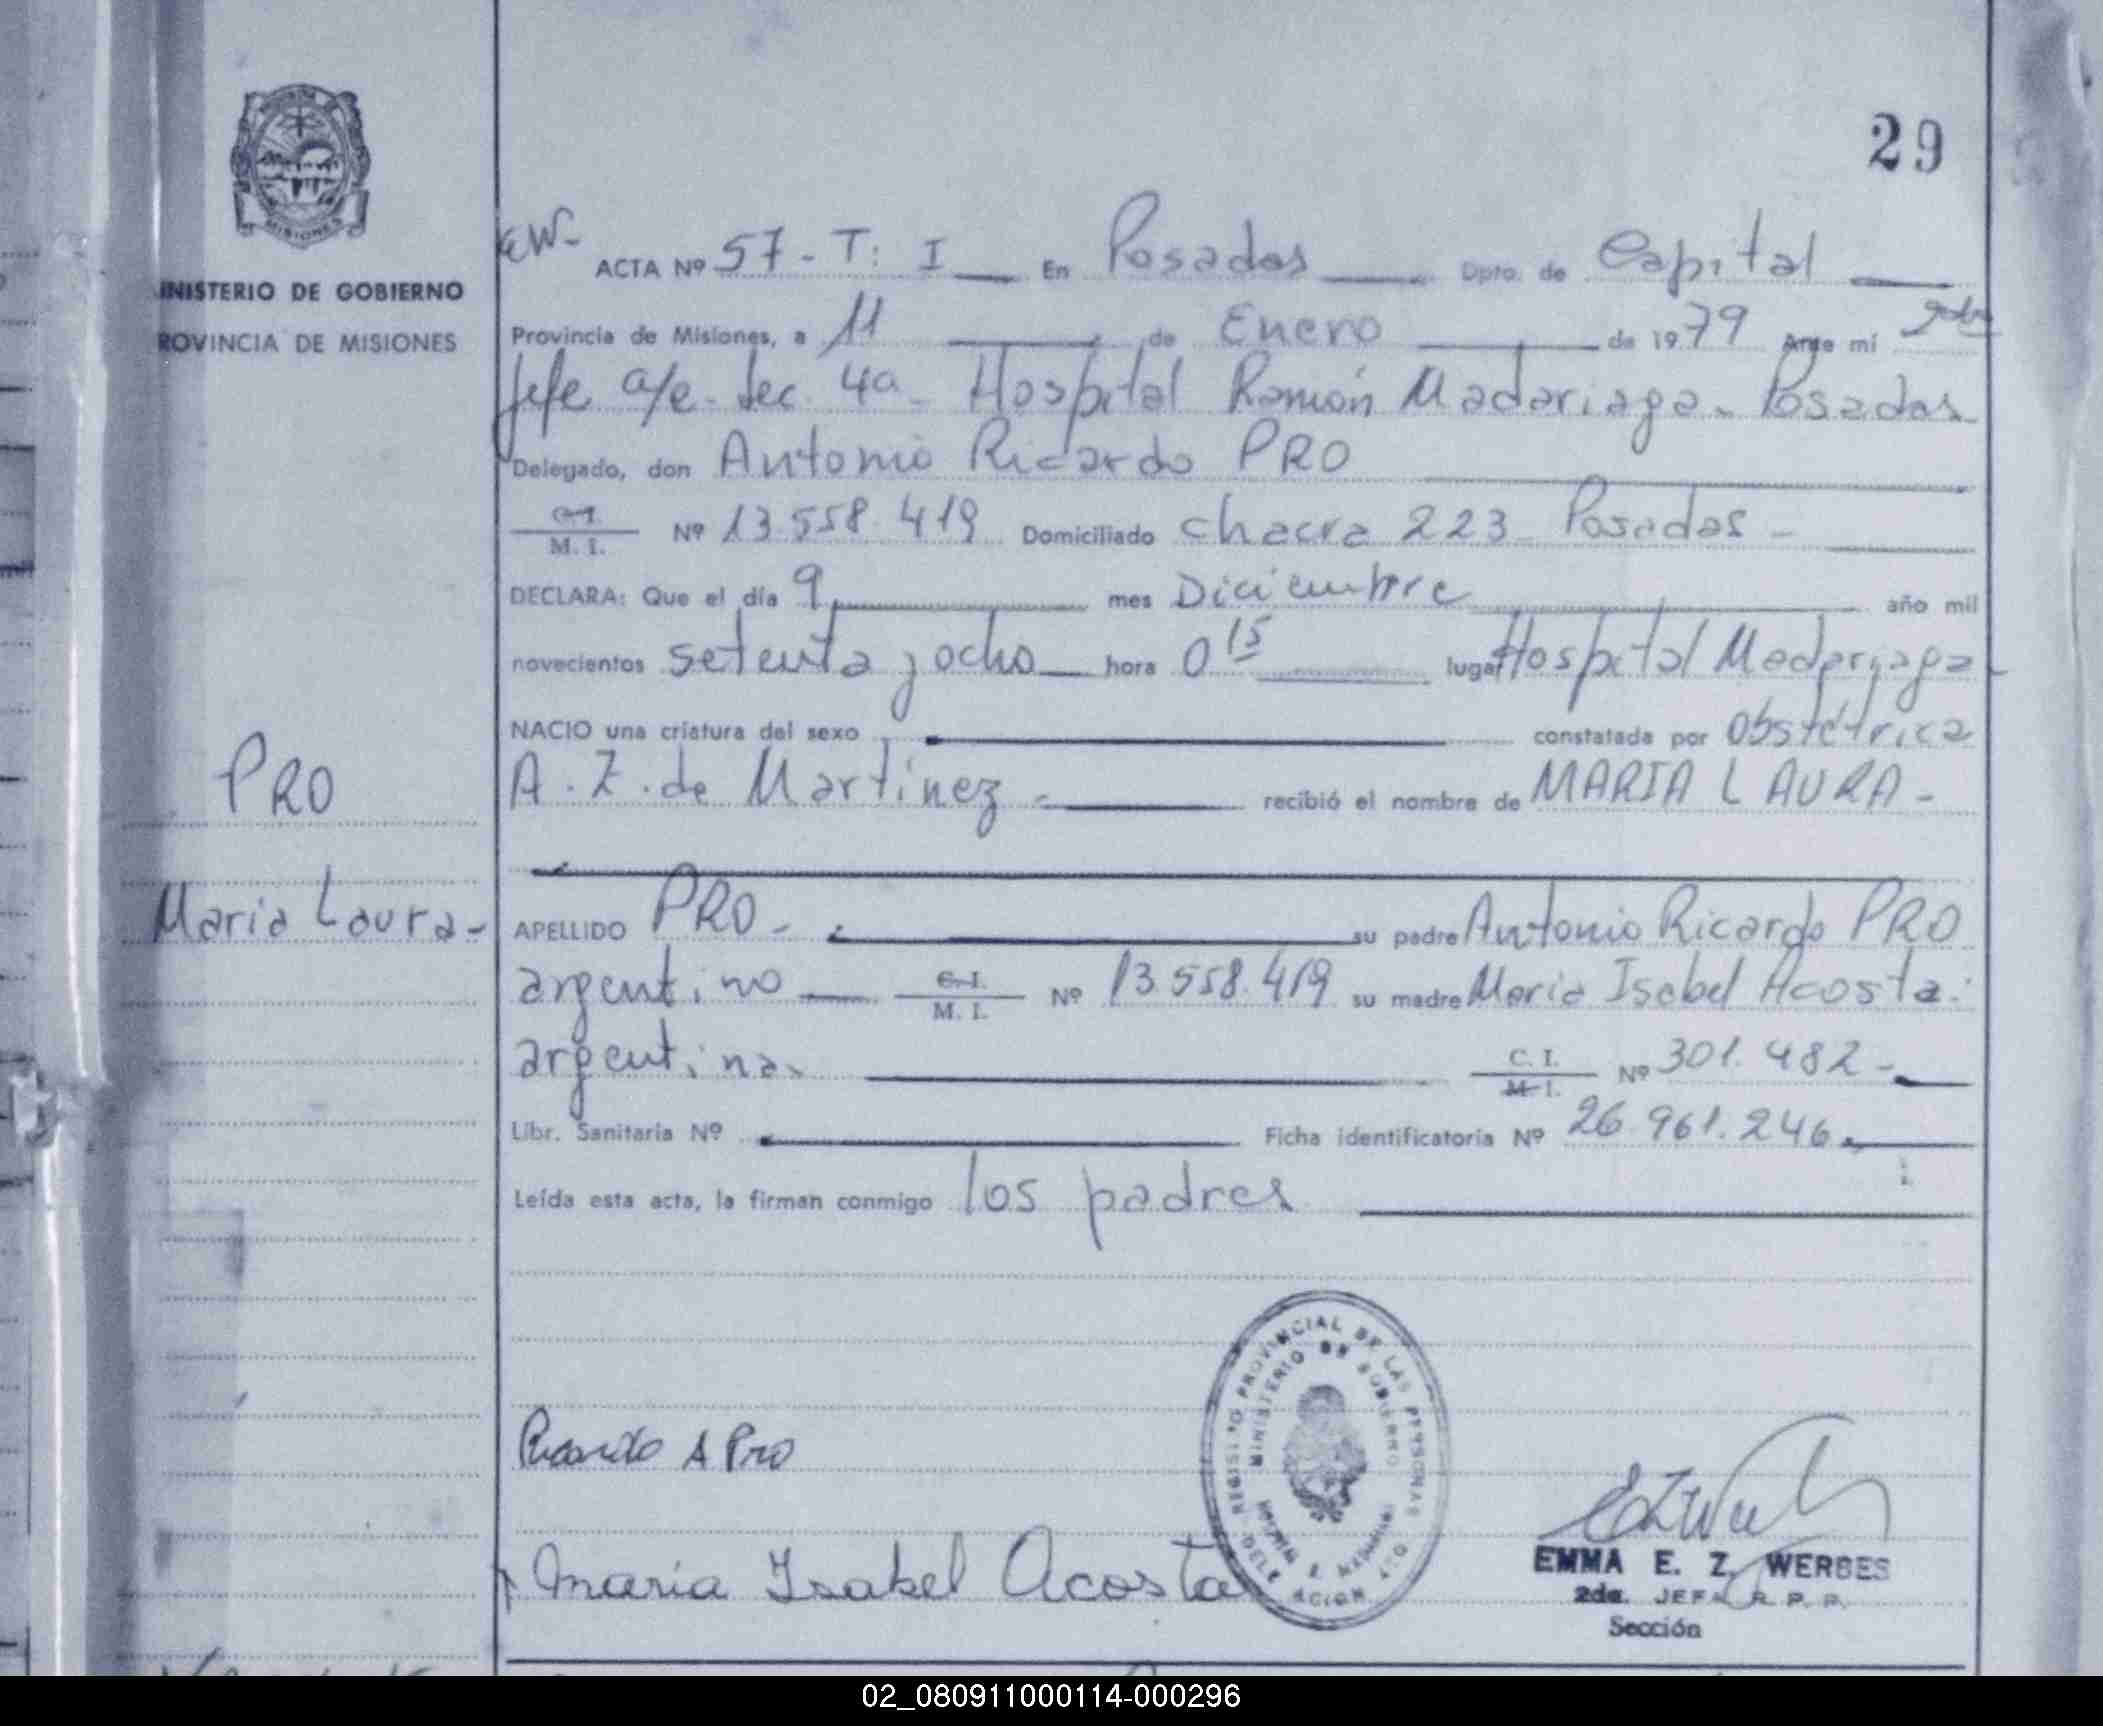 29
MISIONES
INISTERIO DE GOBIERNO
ROVINCIA DE MISIONES
ACTA Nº 57 - T: I En Posadas Dpto. de Capital
Provincia de Misiones, a 11 de Enero de 1979 Ante mí
Jefe a/e. Sec. 4a - Hospital Ramón Madariaga - Posadas
Delegado, don Antonio Ricardo PRO
C. I.
M. I. Nº 13.558.419 Domiciliado chacra 223 - Posadas -
DECLARA: Que el día 9 mes Diciembre año mil
novecientos setenta y ocho hora 0 15 lugar Hospital Madariaga -
NACIO una criatura del sexo constatada por obstétrica
A. Z. de Martínez - recibió el nombre de MARIA LAURA -
PRO
Maria Laura -
APELLIDO PRO - su padre Antonio Ricardo PRO
argentino C. I.
M. I. Nº 13.558.419 su madre Maria Isabel Acosta.
argentina C. I.
M. I. Nº 301.482 -
Libr. Sanitaria Nº Ficha identificatoria Nº 26.961.246
Leída esta acta, la firman conmigo los padres
REGISTRO PROVINCIAL DE LAS PERSONAS
MINISTERIO DE GOBIERNO
DELEGACION
Ricardo A Pro
Maria Isabel Acosta
EMMA E. Z. WERBES
2da. JEFA R. P. P.
Sección
02_080911000114-000296